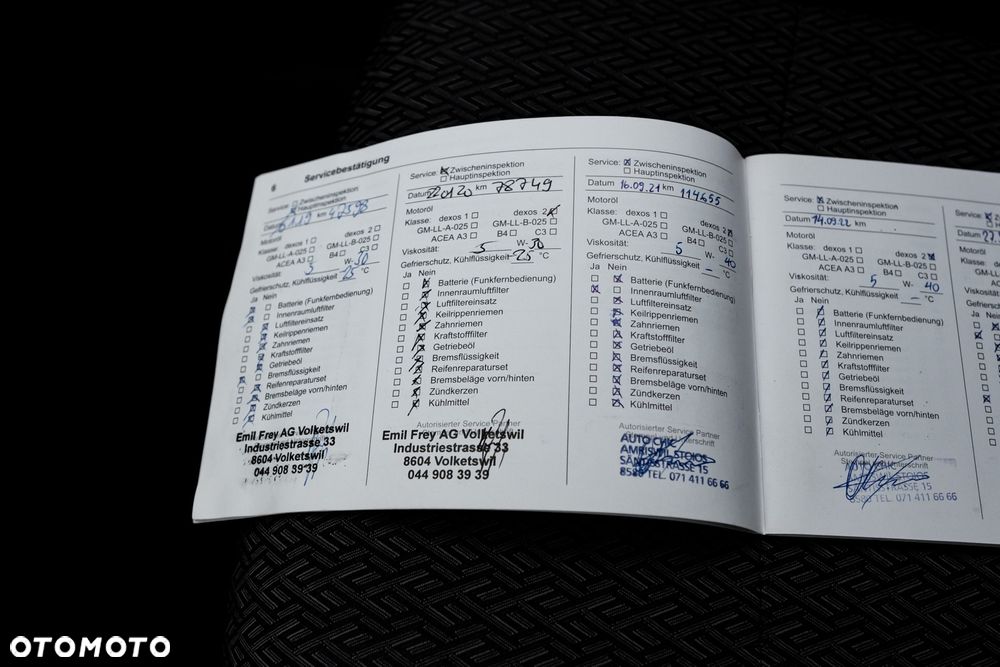 6 Servicebestätigung
Service: Zwischeninspektion
Hauptinspektion
Datum km
Motoröl
Klasse: dexos 1 dexos 2
GM-LL-A-025 GM-LL-B-025
ACEA A3 B4 C3
Viskosität: 5 W- 30
Gefrierschutz, Kühlflüssigkeit -25 °C
Ja Nein
Batterie (Funkfernbedienung)
Innenraumluftfilter
Luftfiltereinsatz
Keilrippenriemen
Zahnriemen
Kraftstofffilter
Getriebeöl
Bremsflüssigkeit
Reifenreparaturset
Bremsbeläge vorn/hinten
Zündkerzen
Kühlmittel
Emil Frey AG Volketswil
Industriestrasse 33
8604 Volketswil
044 908 39 39
Service: Zwischeninspektion
Hauptinspektion
Datum 22.01.20 km 78749
Motoröl
Klasse: dexos 1 dexos 2
GM-LL-A-025 GM-LL-B-025
ACEA A3 B4 C3
Viskosität: 5 W- 30
Gefrierschutz, Kühlflüssigkeit -25 °C
Ja Nein
Batterie (Funkfernbedienung)
Innenraumluftfilter
Luftfiltereinsatz
Keilrippenriemen
Zahnriemen
Kraftstofffilter
Getriebeöl
Bremsflüssigkeit
Reifenreparaturset
Bremsbeläge vorn/hinten
Zündkerzen
Kühlmittel
Autorisierter Service Partner
Emil Frey AG Volketswil
Industriestrasse 33
8604 Volketswil
044 908 39 39
Service: Zwischeninspektion
Hauptinspektion
Datum 16.09.21 km 114655
Motoröl
Klasse: dexos 1 dexos 2
GM-LL-A-025 GM-LL-B-025
ACEA A3 B4 C3
Viskosität: 5 W- 40
Gefrierschutz, Kühlflüssigkeit – °C
Ja Nein
Batterie (Funkfernbedienung)
Innenraumluftfilter
Luftfiltereinsatz
Keilrippenriemen
Zahnriemen
Kraftstofffilter
Getriebeöl
Bremsflüssigkeit
Reifenreparaturset
Bremsbeläge vorn/hinten
Zündkerzen
Kühlmittel
Autorisierter Service Partner
AUTO CHIC
AMRISWIL STOJOS
SÄNTISSTRASSE 15
8580 TEL. 071 411 66 66
Service: Zwischeninspektion
Hauptinspektion
Datum 14.09.22 km
Motoröl
Klasse: dexos 1 dexos 2
GM-LL-A-025 GM-LL-B-025
ACEA A3 B4 C3
Viskosität: 5 W- 40
Gefrierschutz, Kühlflüssigkeit – °C
Ja Nein
Batterie (Funkfernbedienung)
Innenraumluftfilter
Luftfiltereinsatz
Keilrippenriemen
Zahnriemen
Kraftstofffilter
Getriebeöl
Bremsflüssigkeit
Reifenreparaturset
Bremsbeläge vorn/hinten
Zündkerzen
Kühlmittel
Autorisierter Service Partner
8580 TEL. 071 411 66 66
Service:
Datum
Motoröl
Klasse:
Viskosität
Ja
OTOMOTO